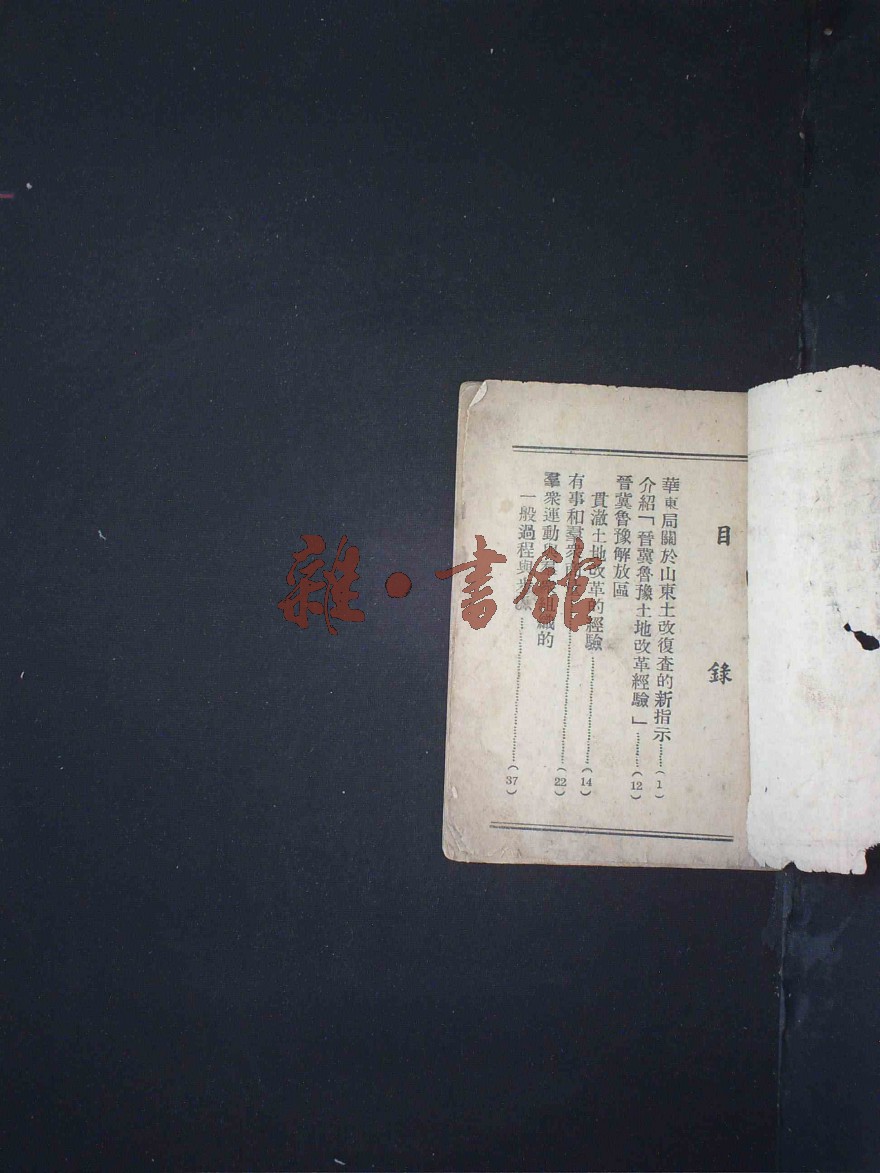 目錄
華東局關於山東土改復查的新指示……(1)
介紹「晉冀魯豫土地改革經驗」……(12)
晉冀魯豫解放區
貫澈土地改革的經驗……(14)
有事和羣衆……(22)
羣衆運動的
一般過程與……(37)
雜·書館